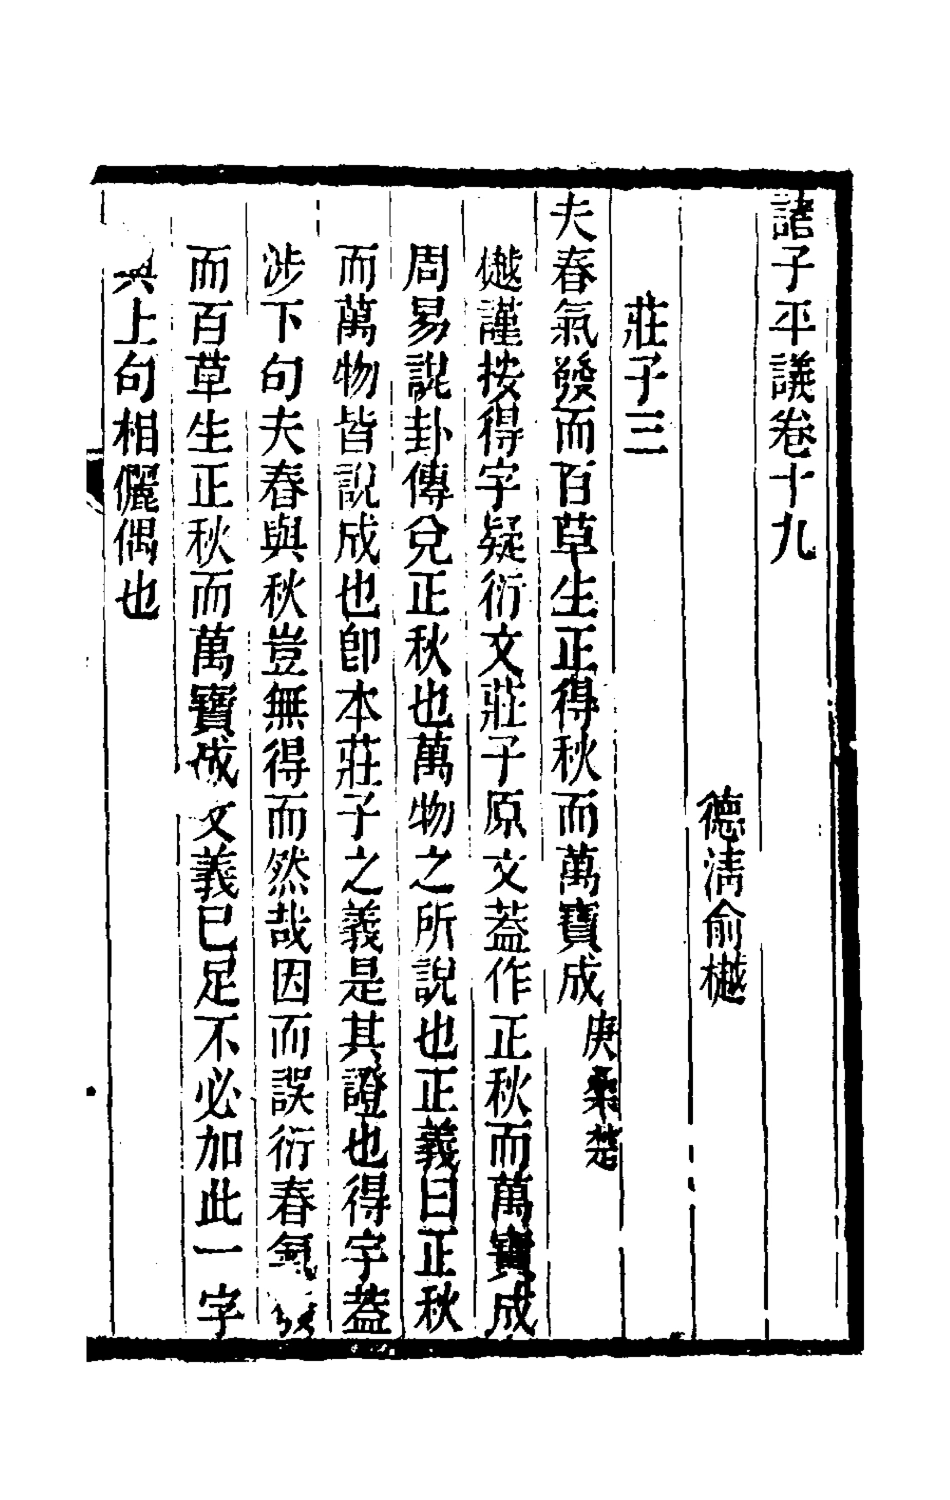 諸子平議卷十九
德淸俞樾
莊子三
夫春氣發而百草生正得秋而萬寶成庚桑楚
樾謹按得字疑衍文莊子原文蓋作正秋而萬寶成
周易說卦傳兌正秋也萬物之所說也正義曰正秋
而萬物皆說成也卽本莊子之義是其證也得字蓋
涉下句夫春與秋豈無得而然哉因而誤衍春氣
而百草生正秋而萬寶成文義已足不必加此一字
與上句相儷偶也